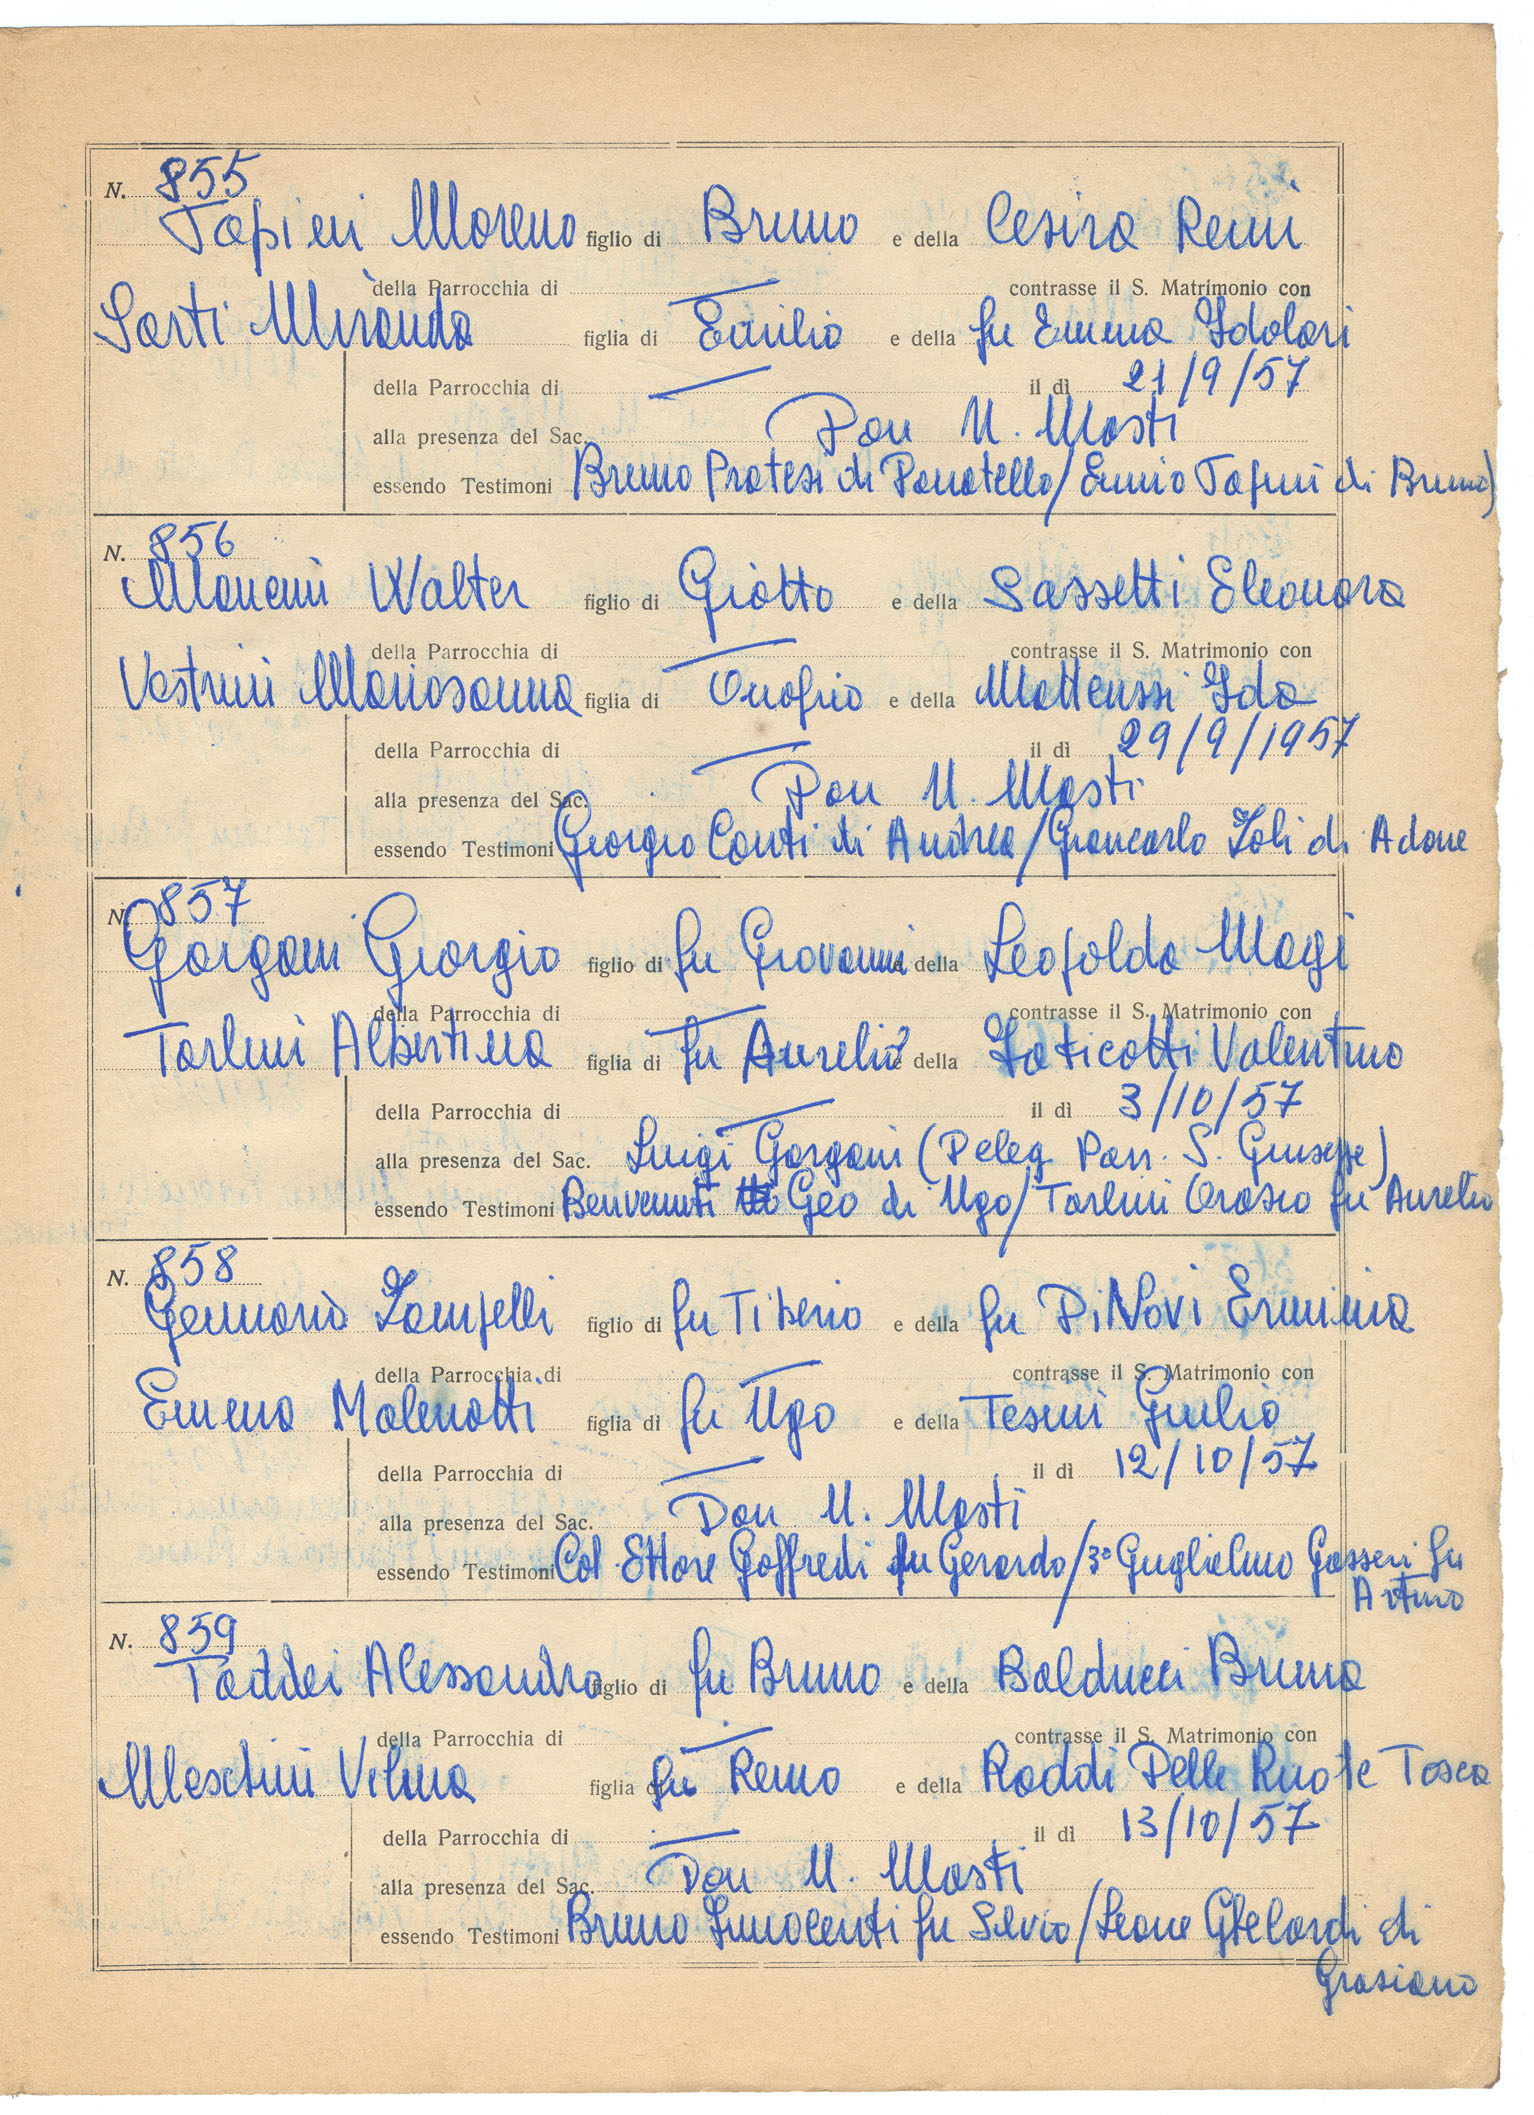 N. 855
Tafini Moreno figlio di Bruno e della Cesira Remi
della Parrocchia di — contrasse il S. Matrimonio con
Sarti Miranda figlia di Emilio e della fu Emma Idolari
della Parrocchia di — il dì 21/9/57
alla presenza del Sac. Don U. Masti
essendo Testimoni Bruno Pratesi di Donatello/Ennio Tafini di Bruno)
N. 856
Mancini Walter figlio di Giotto e della Sassetti Eleonora
della Parrocchia di — contrasse il S. Matrimonio con
Vestrini Mariosanna figlia di Onofrio e della Matteussi Ida
della Parrocchia di — il dì 29/9/1957
alla presenza del Sac. Don U. Masti
essendo Testimoni Giorgio Conti di Andrea/Giancarlo Zoli di Adone
N. 857
Gargani Giorgio figlio di fu Giovanni e della Leopolda Magi
della Parrocchia di — contrasse il S. Matrimonio con
Tarlini Albertina figlia di fu Aurelio e della Valentina
della Parrocchia di — il dì 3/10/57
alla presenza del Sac. Luigi Gargani (Deleg. Parr. S. Giuseppe)
essendo Testimoni Benvenuti Geo di Ugo/Tarlini Orasio fu Aurelio
N. 858
Germano Zampelli figlio di fu Tiberio e della fu Di Novi Erminia
della Parrocchia di — contrasse il S. Matrimonio con
Emma Malenotti figlia di fu Ugo e della Tesini Giulia
della Parrocchia di — il dì 12/10/57
alla presenza del Sac. Don U. Masti
essendo Testimoni Col. Ettore Goffredi fu Gerardo/ Guglielmo Gasseri fu
Arturo
N. 859
Taddei Alessandro figlio di fu Bruno e della Balducci Bruna
della Parrocchia di — contrasse il S. Matrimonio con
Meschini Velma figlia di fu Remo e della Raddi Delle Ruote Tosca
della Parrocchia di — il dì 13/10/57
alla presenza del Sac. Don U. Masti
essendo Testimoni Bruno Innocenti fu Silvio/Leone Ghelardi di
Grasiano